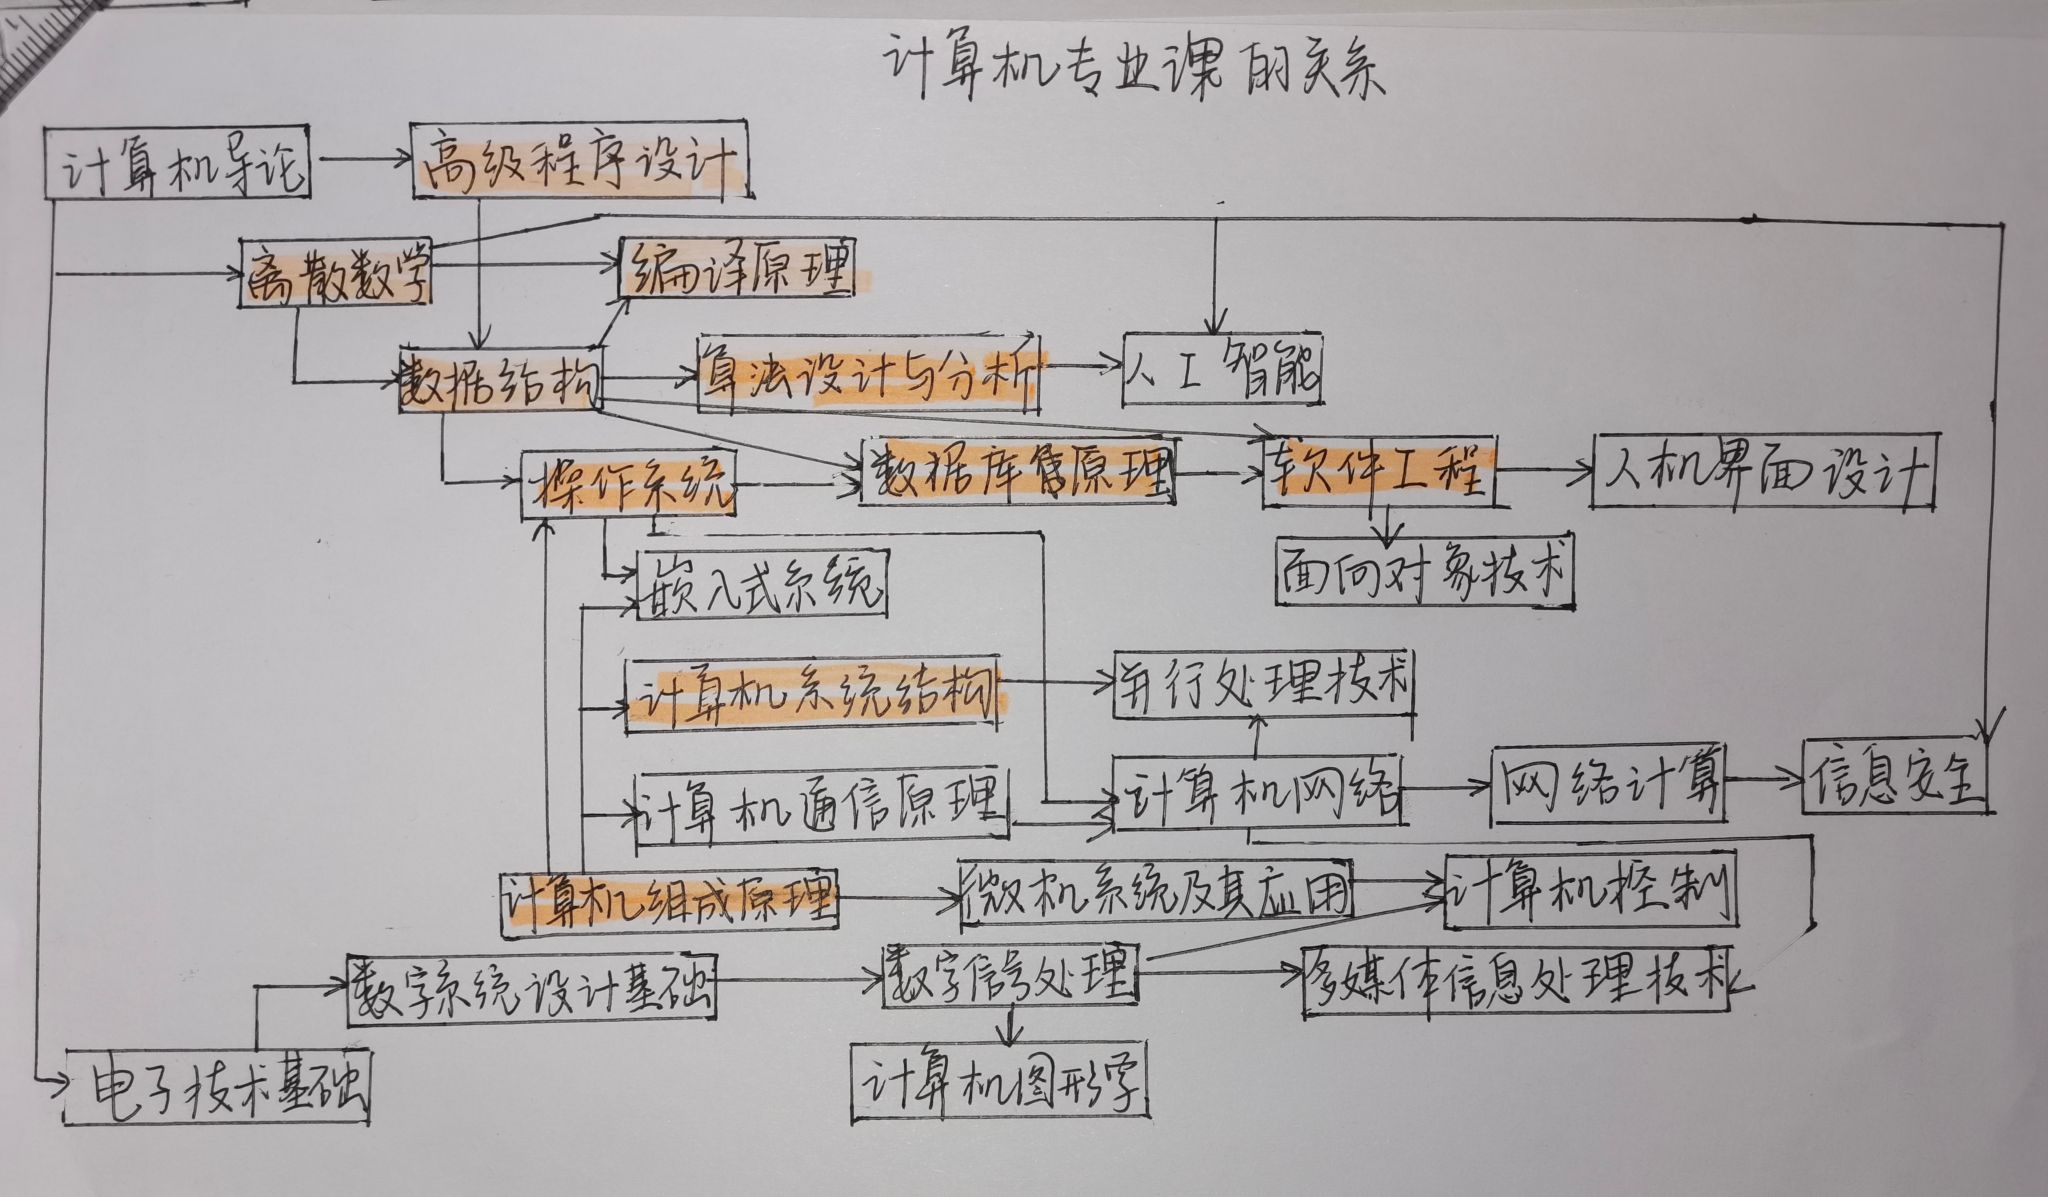 计算机专业课的关系
计算机导论 高级程序设计
离散数学 编译原理
数据结构 算法设计与分析 人工智能
操作系统 数据库原理 软件工程 人机界面设计
嵌入式系统 面向对象技术
计算机系统结构 并行处理技术
计算机通信原理 计算机网络 网络计算 信息安全
计算机组成原理 微机系统及其应用 计算机控制
数字系统设计基础 数字信号处理 多媒体信息处理技术
电子技术基础 计算机图形学